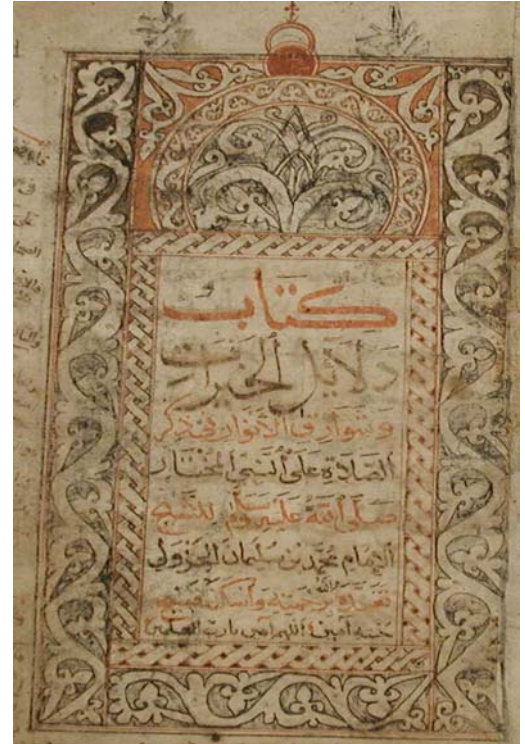 كتاب
دلايل الخيرات
وشوارق الانوار في ذكر
الصلاة على النبي المختار
صلى الله عليه وسلم للشيخ
الامام محمد بن سلمان الجزولي
تغمده الله برحمته واسكنه فسيح
جنته امين اللهم امين يا رب العلمين